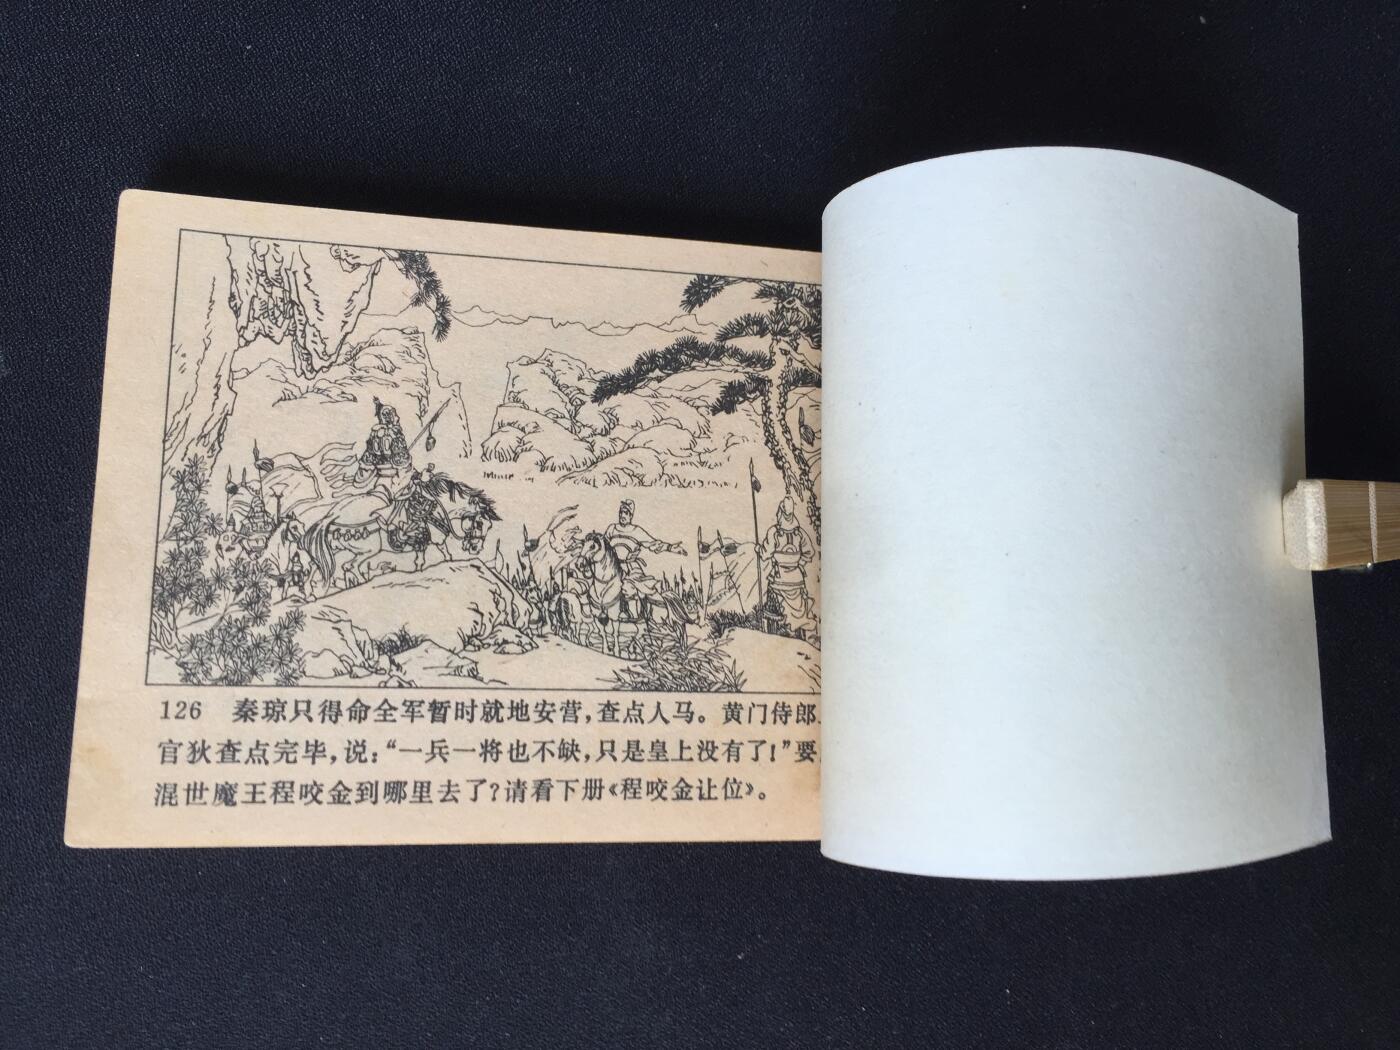 126 秦琼只得命全军暂时就地安营，查点人马。黄门侍郎
官狄查点完毕，说：“一兵一将也不缺，只是皇上没有了！”要
混世魔王程咬金到哪里去了？请看下册《程咬金让位》。